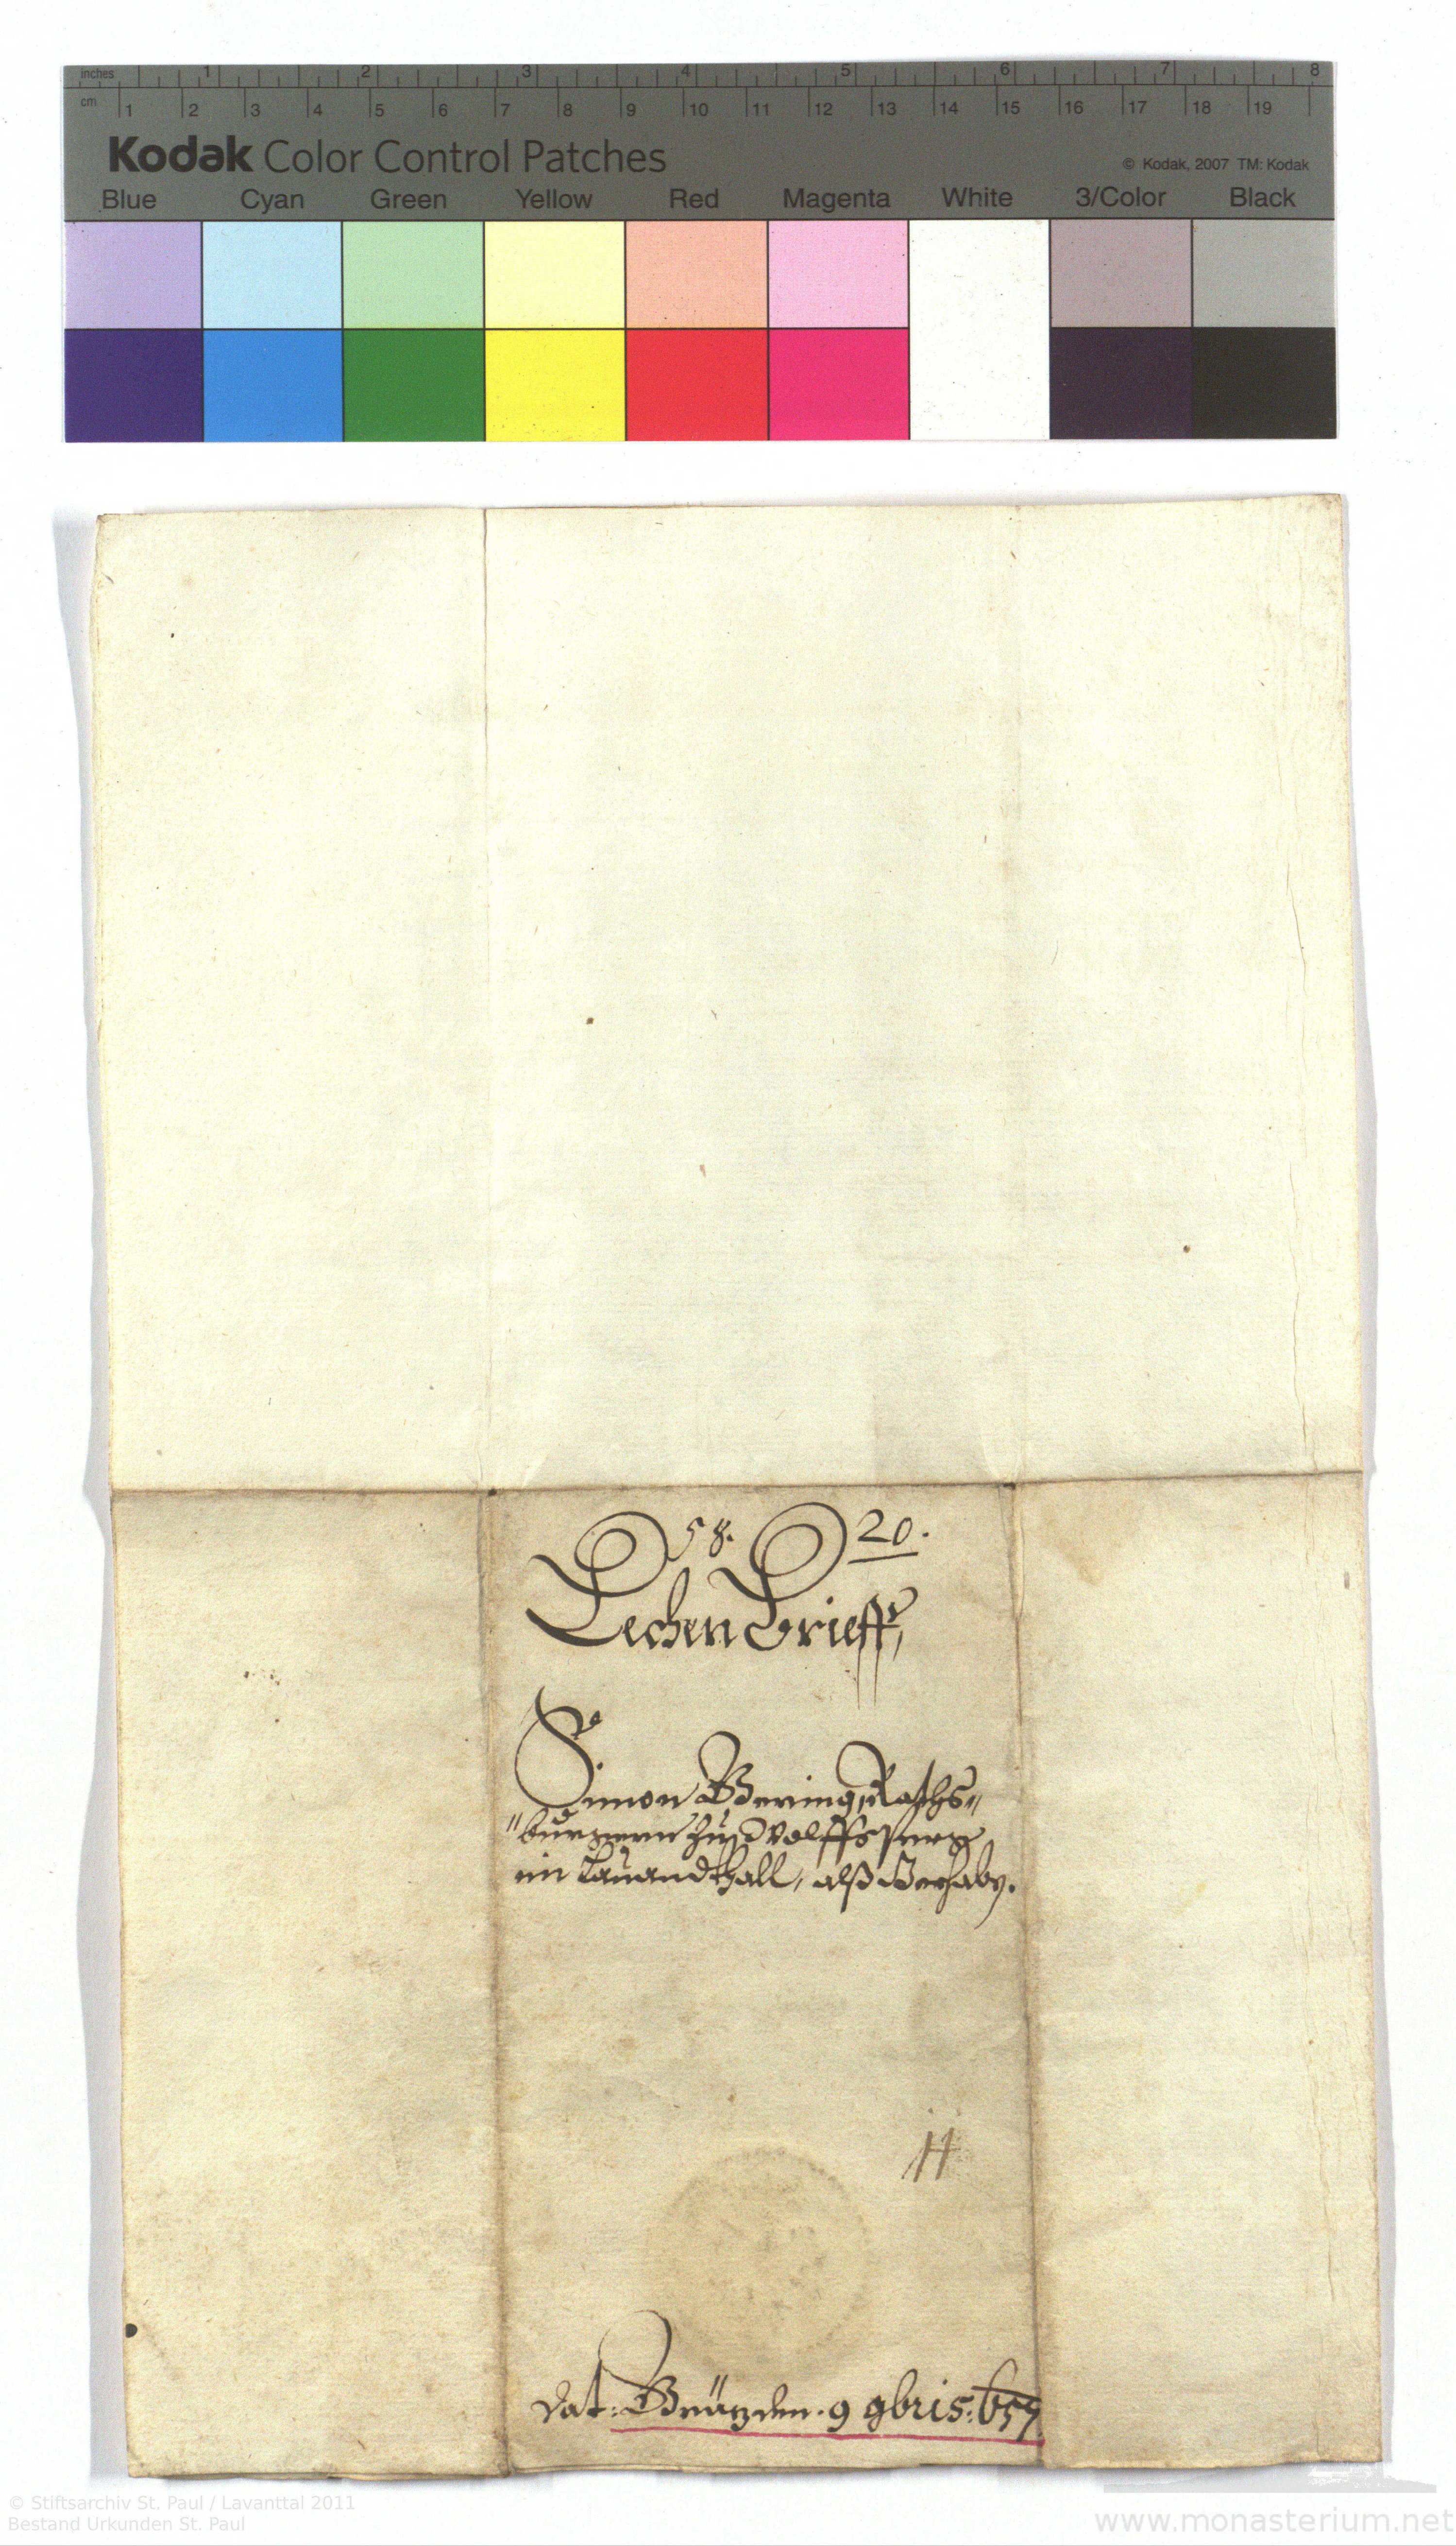 inches 1 2 3 4 5 6 7 8
cm 1 2 3 4 5 6 7 8 9 10 11 12 13 14 15 16 17 18 19
Kodak Color Control Patches
© Kodak, 2007 TM: Kodak
Blue Cyan Green Yellow Red Magenta White 3/Color Black
58. 20.
Lechen Brieff,
Simon Gering, Raths„
„burgern zu Wolffsperg
im Lauandthall, alß Gerhabn.
11
Dat: Gräz den. 9 9bris. 657
© Stiftsarchiv St. Paul / Lavanttal 2011
Bestand Urkunden St. Paul
www.monasterium.net